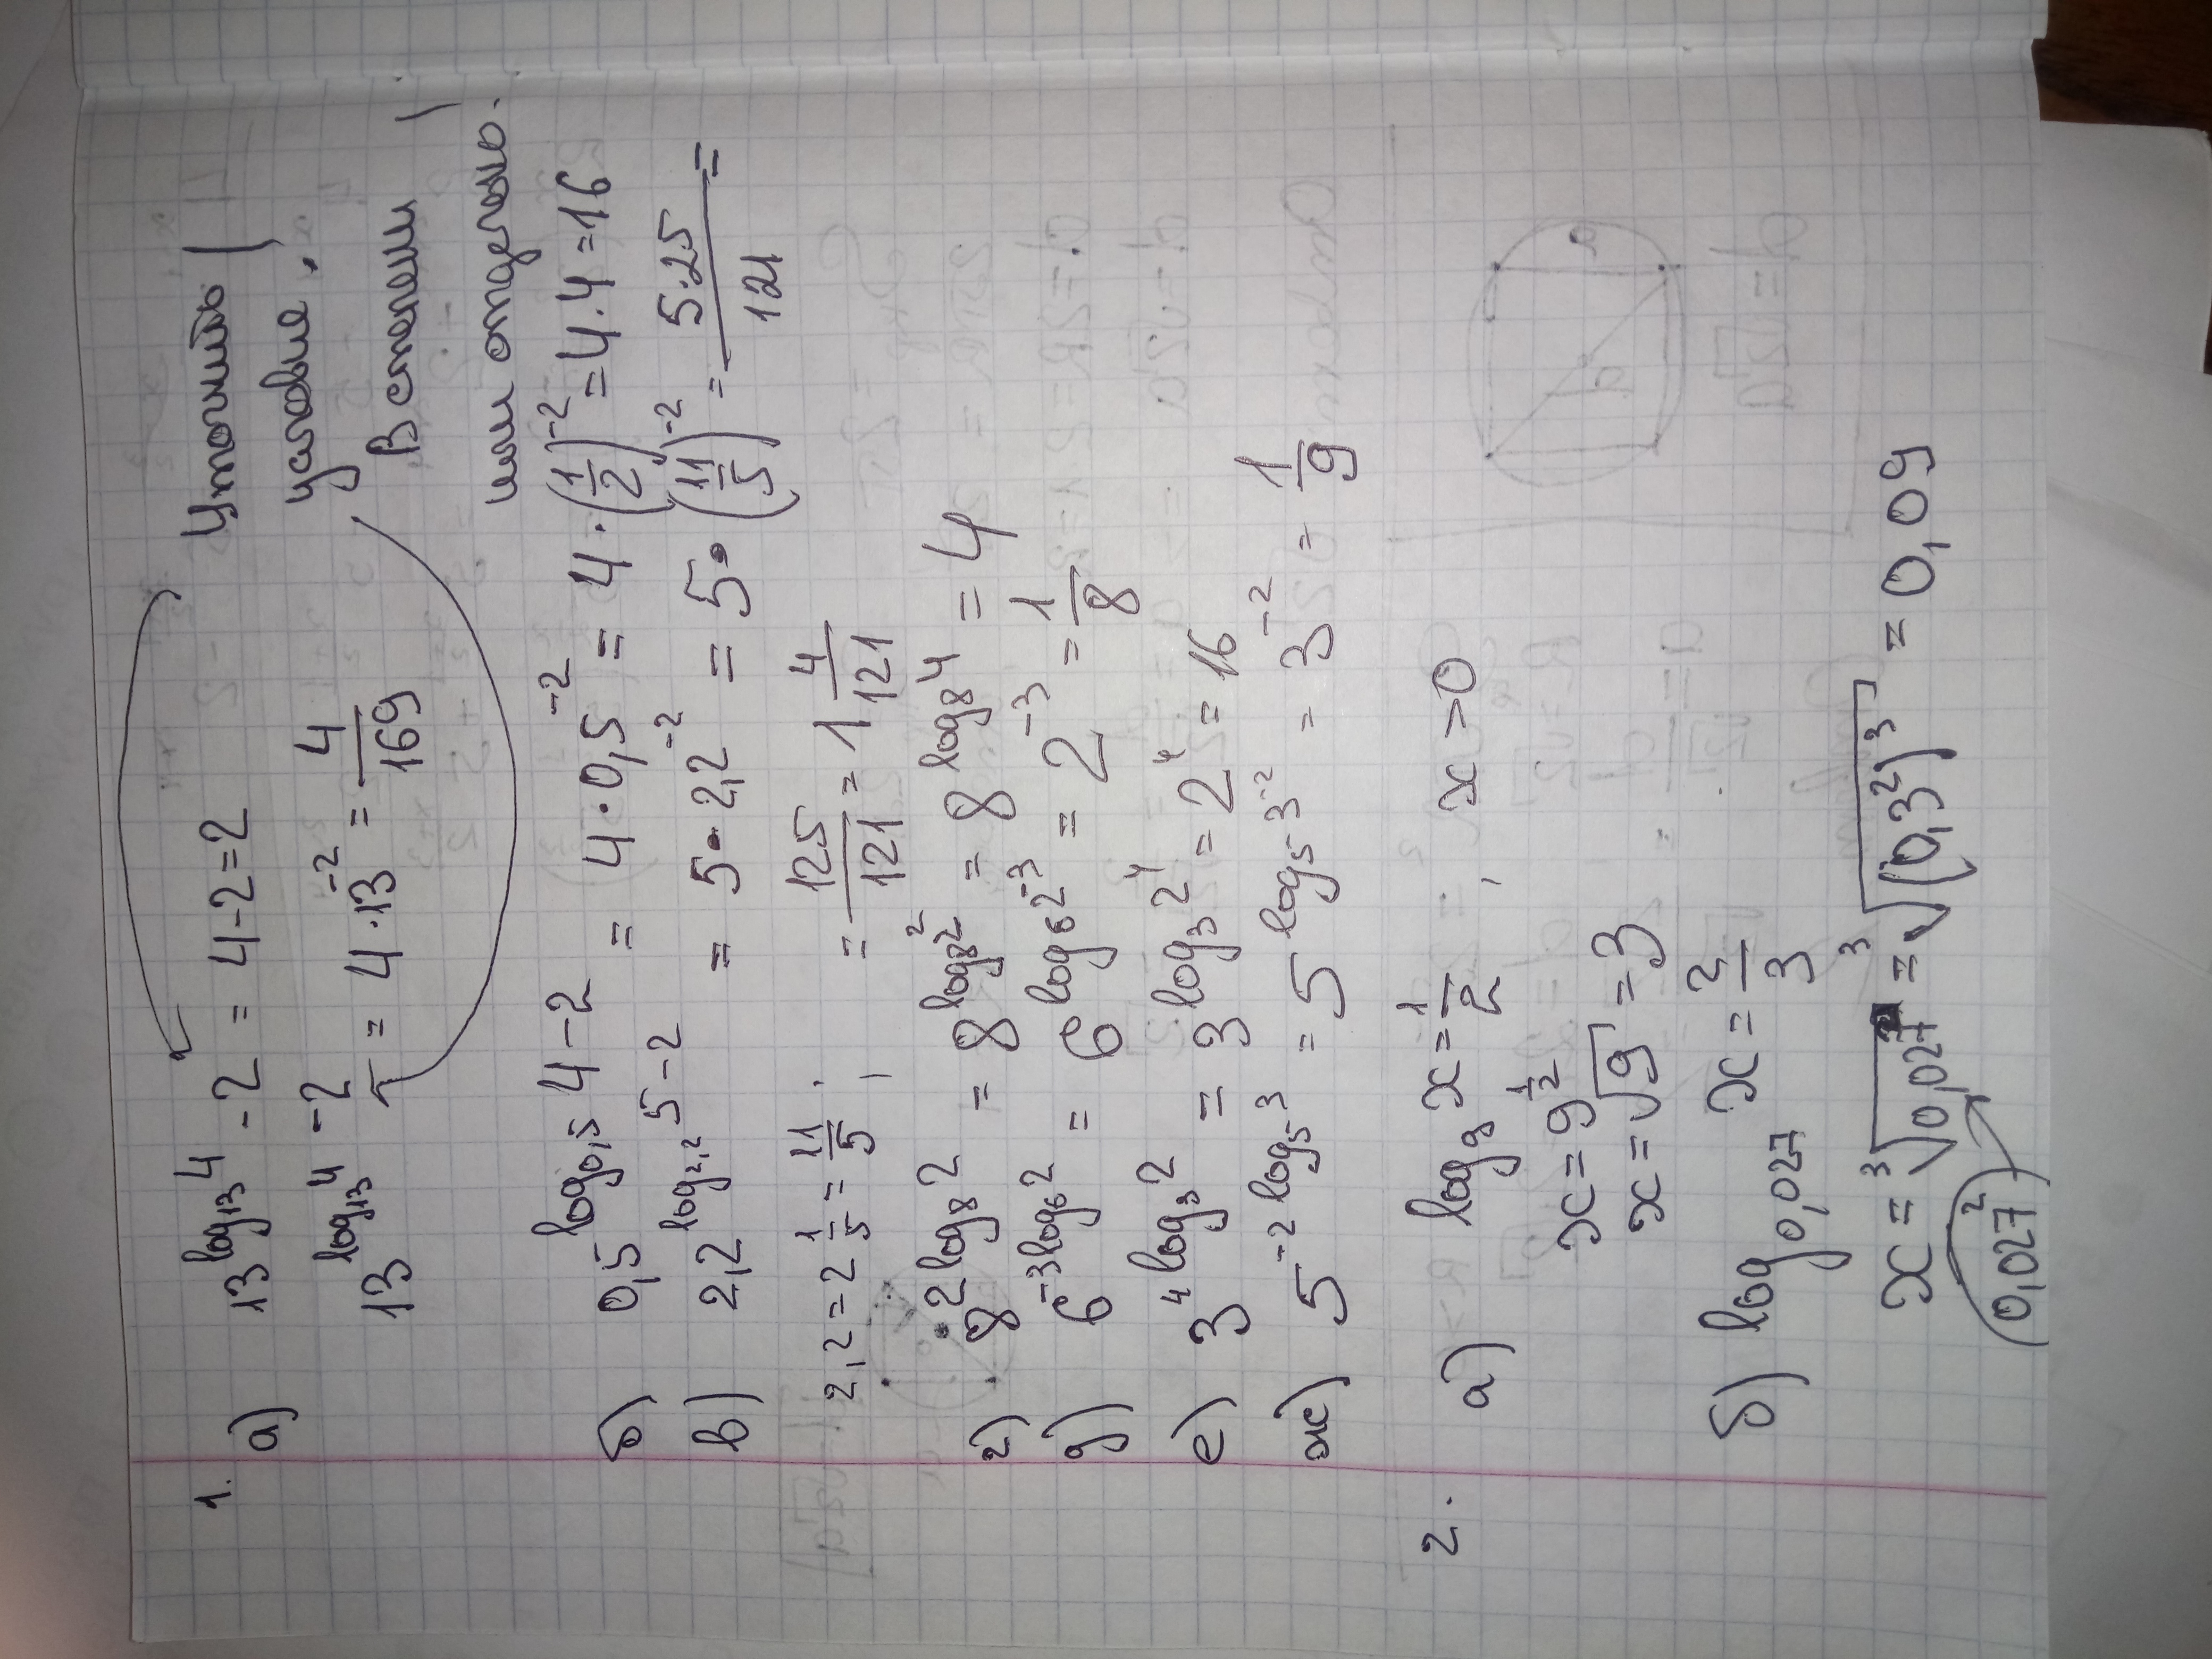 1.
а) 13^(log₁₃4) - 2 = 4 - 2 = 2
Уточнить
условие,
В степени
или отдельно.
13^(log₁₃4 - 2) = 4 · 13⁻² = 4/169
б) 0,5^(log₀,₅4 - 2) = 4 · 0,5⁻² = 4 · (1/2)⁻² = 4 · 4 = 16
в) 2,2^(log₂,₂5 - 2) = 5 · 2,2⁻² = 5 · (11/5)⁻² = 5·25/121 =
2,2 = 2 1/5 = 11/5 ; = 125/121 = 1 4/121
г) 8^(2log₈2) = 8^(log₈2²) = 8^(log₈4) = 4
д) 6^(-3log₆2) = 6^(log₆2⁻³) = 2⁻³ = 1/8
е) 3^(4log₃2) = 3^(log₃2⁴) = 2⁴ = 16
ж) 5^(-2log₅3) = 5^(log₅3⁻²) = 3⁻² = 1/9
2.
а) log₉x = 1/2 , x > 0
x = 9^(1/2)
x = √9 = 3
б) log₀,₀₂₇ x = 2/3
x = ∛0,027² = ∛(0,3²)³ = 0,09
(0,027²)